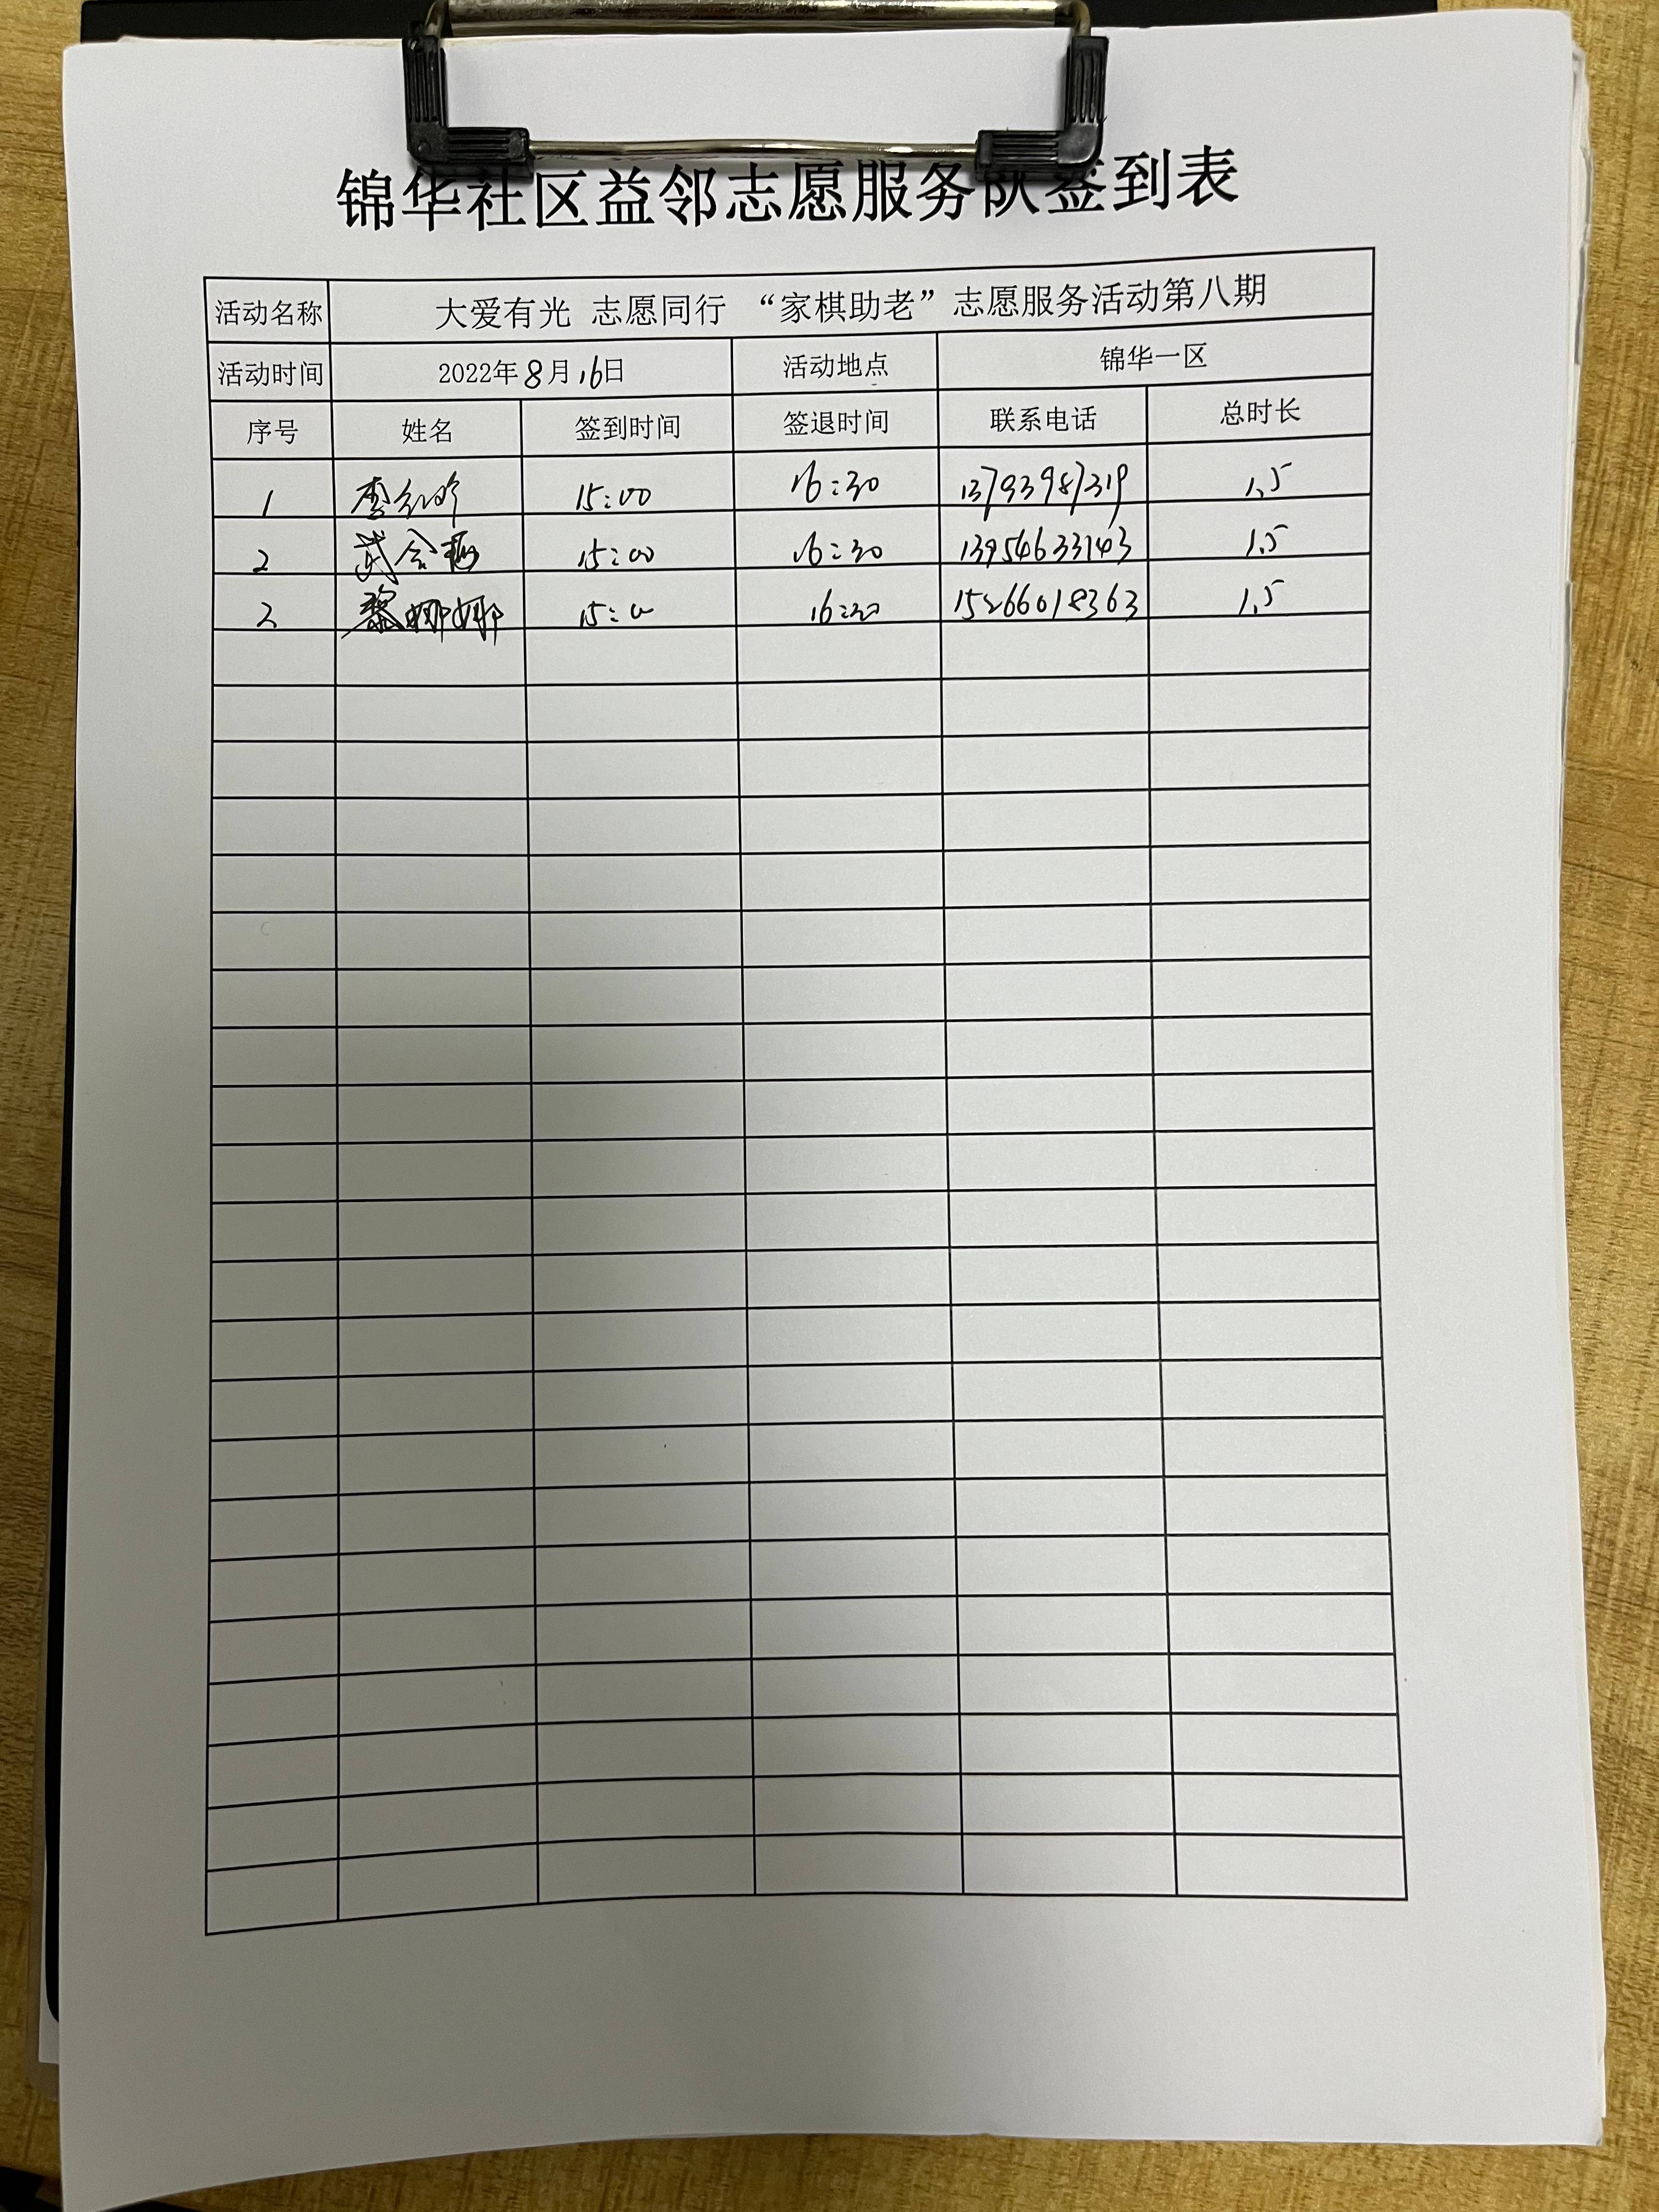 锦华社区益邻志愿服务队签到表
活动名称 大爱有光 志愿同行 “家棋助老”志愿服务活动第八期
活动时间 2022年8月16日 活动地点 锦华一区
序号 姓名 签到时间 签退时间 联系电话 总时长
1 15:00 16:30 13793987319 1.5
2 15:00 16:30 13954633143 1.5
3 黎娜娜 15:00 16:30 15266018363 1.5